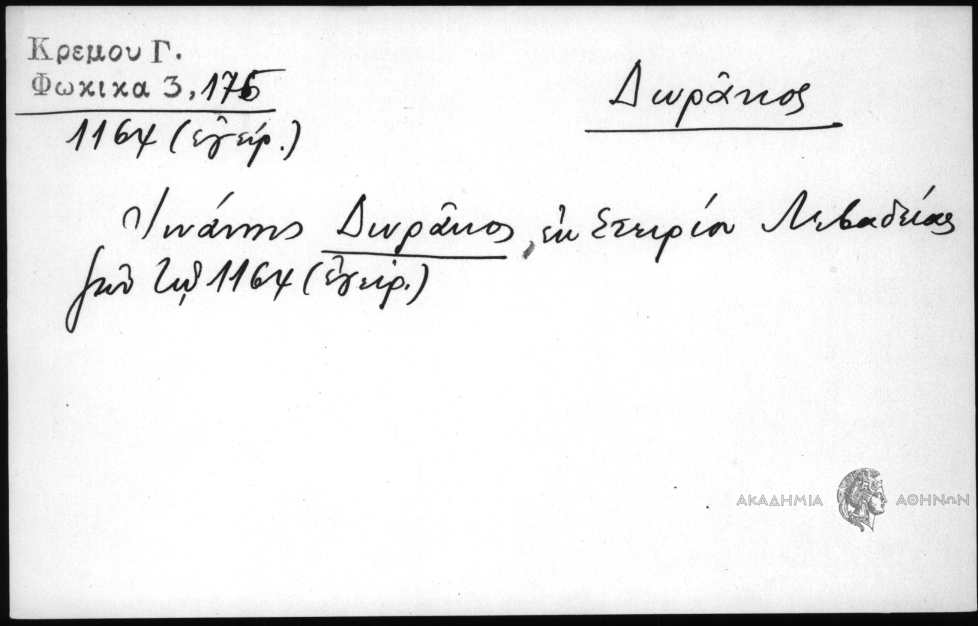 Κρεμου Γ.
Φωκικα 3, 175
1164 (ἐγείρ.)
Δωρᾶκος
Ἰωάννης Δωρᾶκος, ἐκ Στειρίου Λεβαδείας
1164 (ἐγείρ.)
ΑΚΑΔΗΜΙΑ ΑΘΗΝΩΝ